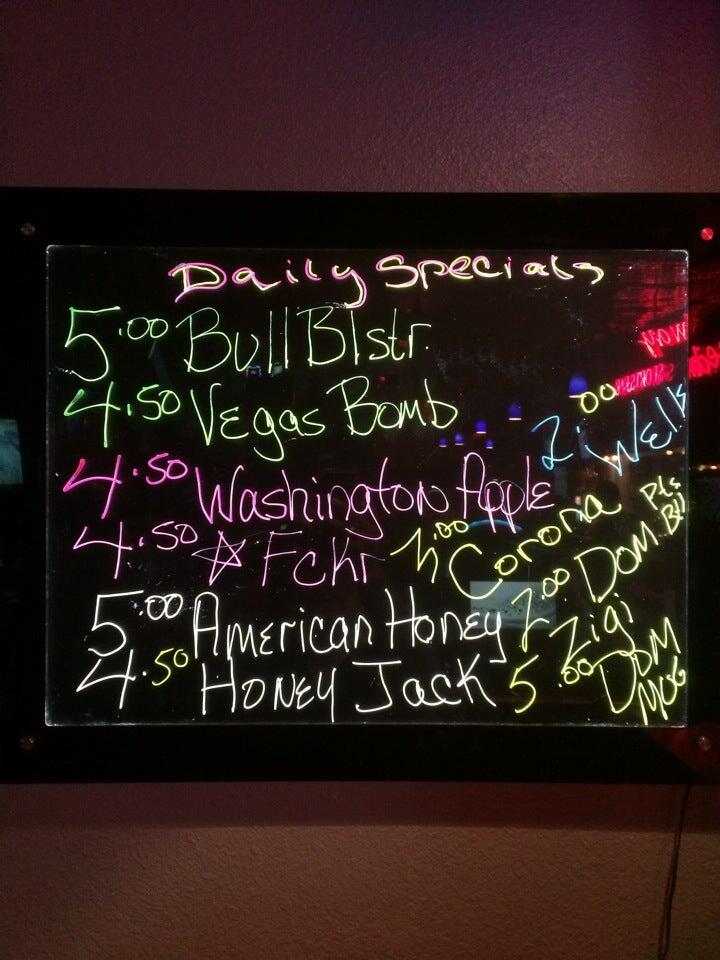 Daily Specials
5.00 Bull Blstr.
4.50 Vegas Bomb
2.00 Wells
4.50 Washington Apple
4.50 ☆ Fckr
Corona
5.00 American Honey
2.00 DOM
Zigi
4.50 Honey Jack
5.00 DOM
MUG